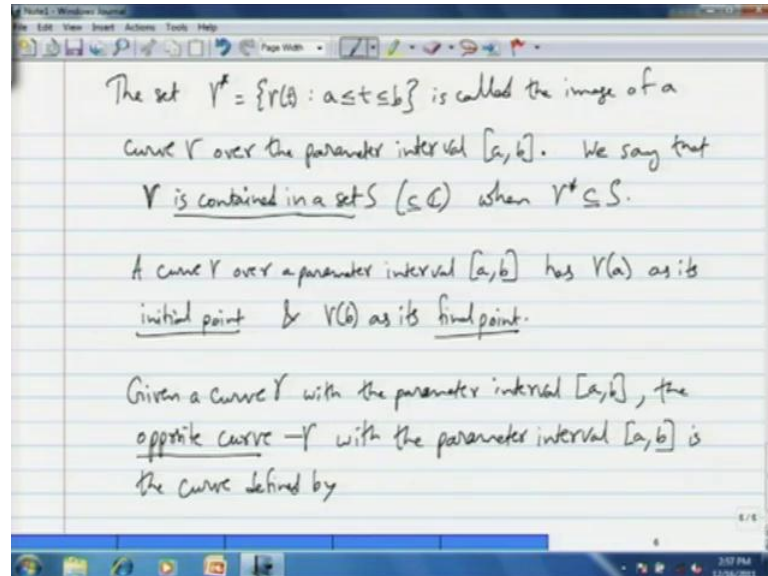 Note1 - Windows Journal
File Edit View Insert Actions Tools Help
Page Width
The set γ* = {γ(t) : a ≤ t ≤ b} is called the image of a
curve γ over the parameter interval [a,b]. We say that
γ is contained in a set S (⊆ ℂ) when γ* ⊆ S.
A curve γ over a parameter interval [a,b] has γ(a) as its
initial point & γ(b) as its final point.
Given a curve γ with the parameter interval [a,b], the
opposite curve -γ with the parameter interval [a,b] is
the curve defined by
6/6
6
2:57 PM
12/16/2011